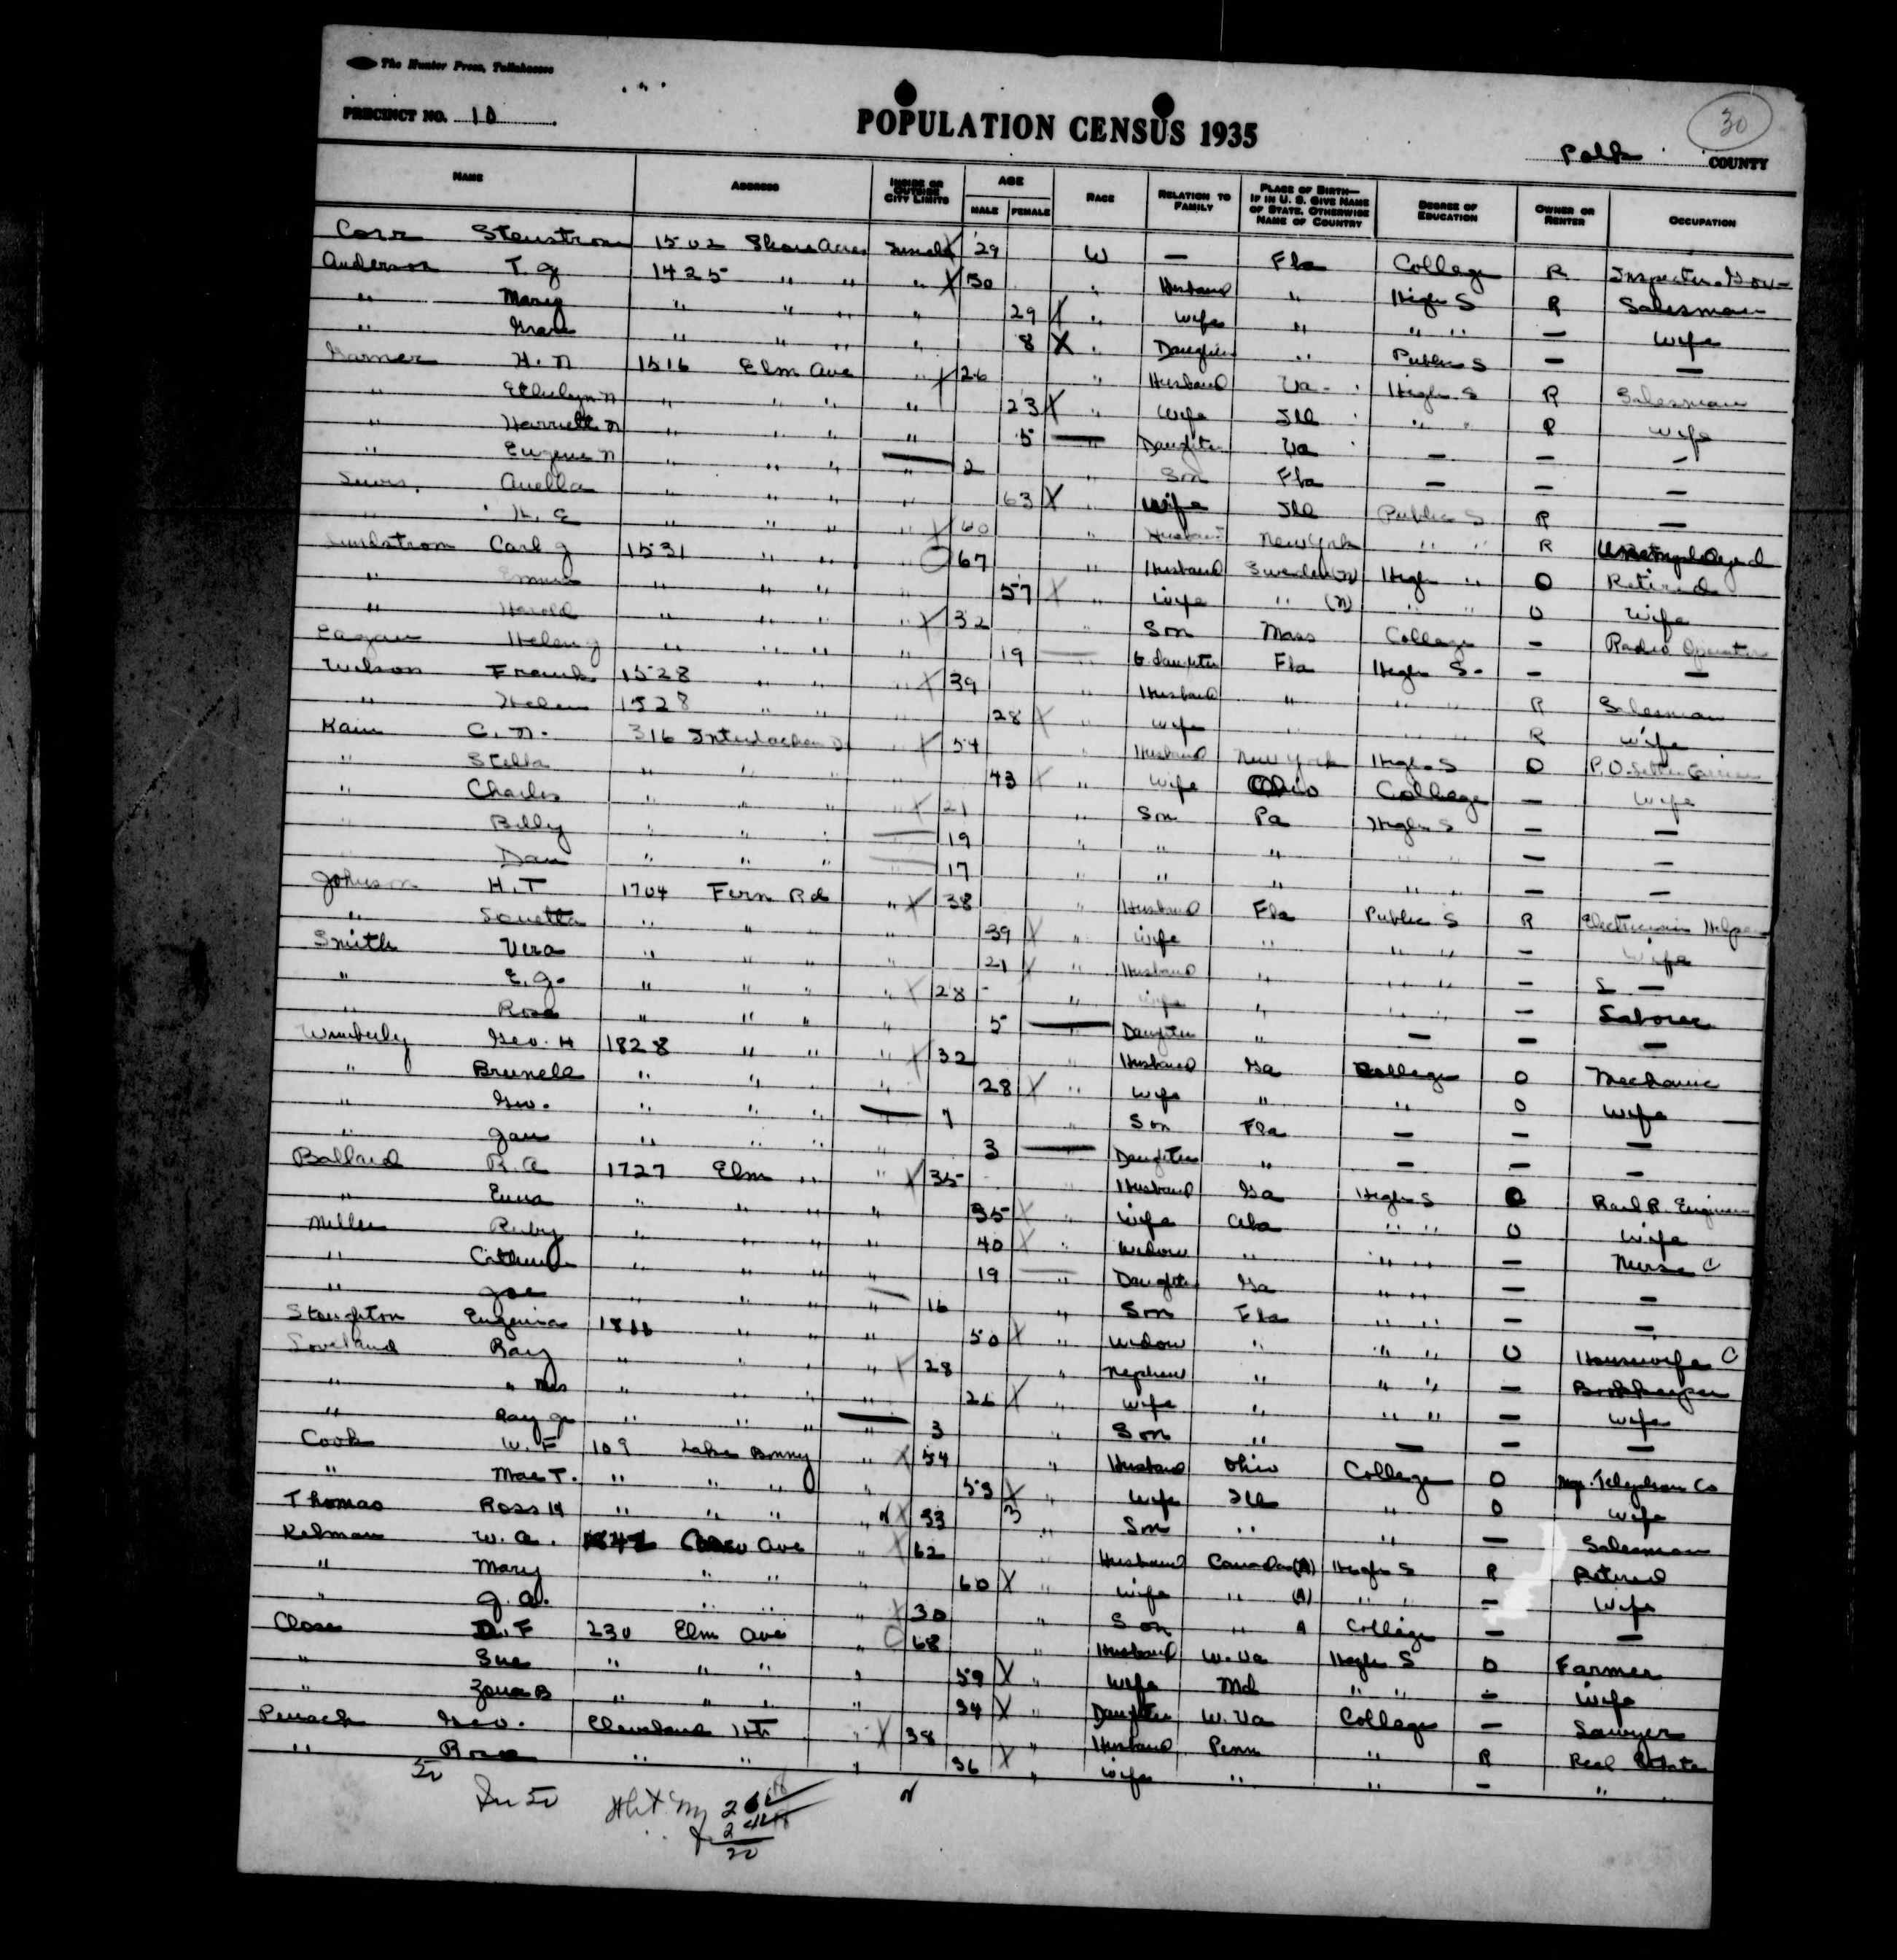 The Hunter Press, Tallahassee
PRECINCT NO. 10
POPULATION CENSUS 1935
30
Polk COUNTY
NAME ADDRESS INSIDE OR OUTSIDE CITY LIMITS AGE MALE FEMALE RACE RELATION TO FAMILY PLACE OF BIRTH—IF IN U. S. GIVE NAME OF STATE, OTHERWISE NAME OF COUNTRY DEGREE OF EDUCATION OWNER OR RENTER OCCUPATION
Corr Stenstrom 1502 Shore Acres Inside X 29 W — Fla College R Inspector
Anderson T. J 1425 " " " X 30 " Husband " High S R Salesman
" Mary " " " " 29 X " Wife " " " — Wife
" Grace " " " " 8 X " Daughter " Public S — —
Garner H. N 1516 Elm Ave " X 26 " Husband Va High S R Salesman
" Ethelyn N " " " " 23 X " Wife Ill " " R Wife
" Harriett N " " " " 5 — " Daughter Va — — —
" Eugene N " " " " 2 " Son Fla — — —
Auella " " " " 63 X " Wife Ill Public S R —
" H. E " " " " X 60 " Husband New York " " R Unemployed
Lundstrom Carl J 1531 " " " O 67 " Husband Sweden (N) High " O Retired
" " " " " 57 X " Wife " (N) " " O Wife
" Harold " " " " X 32 " Son Mass College — Radio Operator
Eagan Helen J " " " " 19 — G. daughter Fla High S — —
Wilson Frank 1528 " " " X 39 " Husband " " " R Salesman
" Helen 1528 " " " 28 X " Wife " " " R Wife
Kain C. N. 316 Interlachen " X 54 " Husband New York High S O P.O. Letter Carrier
" Stella " " " " 43 X " Wife Ohio College — Wife
" Charles " " " " X 21 " Son Pa High S — —
" Billy " " " — 19 " " " " " — —
" Dan " " " — 17 " " " " " — —
Johnson H. T 1704 Fern Rd " X 38 " Husband Fla Public S R Electricians Helper
" Louetta " " " " 39 X " Wife " " " — Wife
Smith Vera " " " " 21 X " Husband " " " — —
" E. J. " " " " X 28 " Wife " " " — Laborer
" Rose " " " " 5 — " Daughter " — — —
Wimberly Geo. H 1828 " " " X 32 " Husband Ga College O Mechanic
" Brunelle " " " " 28 X " Wife " " O Wife
" Geo. " " " — 7 Son Fla — — —
" Jan " " " " 3 — Daughter " — — —
Ballard R. A 1727 Elm " " X 35 " Husband Ga High S O Rail R. Engineer
" Enna " " " " 35 X " Wife Ala " " O Wife
Miller Ruby " " " " 40 X " Widow " " " — Nurse C
" Catherine " " " " 19 — " Daughter Ga " " — —
" Joe " " " " 16 " Son Fla " " — —
Stoughton Eugenia 18 " " " 50 X " Widow " " " O Housewife C
Loveland Ray " " " " X 28 " Nephew " " " — Bookkeeper
" " Mrs " " " " 26 X " Wife " " " — Wife
" Ray Jr " " " — 3 " Son " — — —
Cook W. F 109 Lake Bonny " X 54 " Husband Ohio College O Mgr. Telephone Co
" Mae T. " " " " 53 X " Wife Ill " O Wife
Thomas Ross H " " " " X 33 " Son " " — Salesman
Kelman W. A. Ave " X 62 " Husband Canada (A) High S R Retired
" Mary " " " 60 X " Wife " (A) " " — Wife
" J. A. " " " X 30 " Son " A College — —
Close D. F 230 Elm Ave " O 68 " Husband W. Va High S O Farmer
" Sue " " " " 59 X " Wife Md " " — Wife
" Zona B " " " " 34 X " Daughter W. Va College — Sawyer
Geo. Cleveland Hts " X 38 " Husband Penn " R Real Estate
" Rose " " " 36 X " Wife " " — "
50
In 50